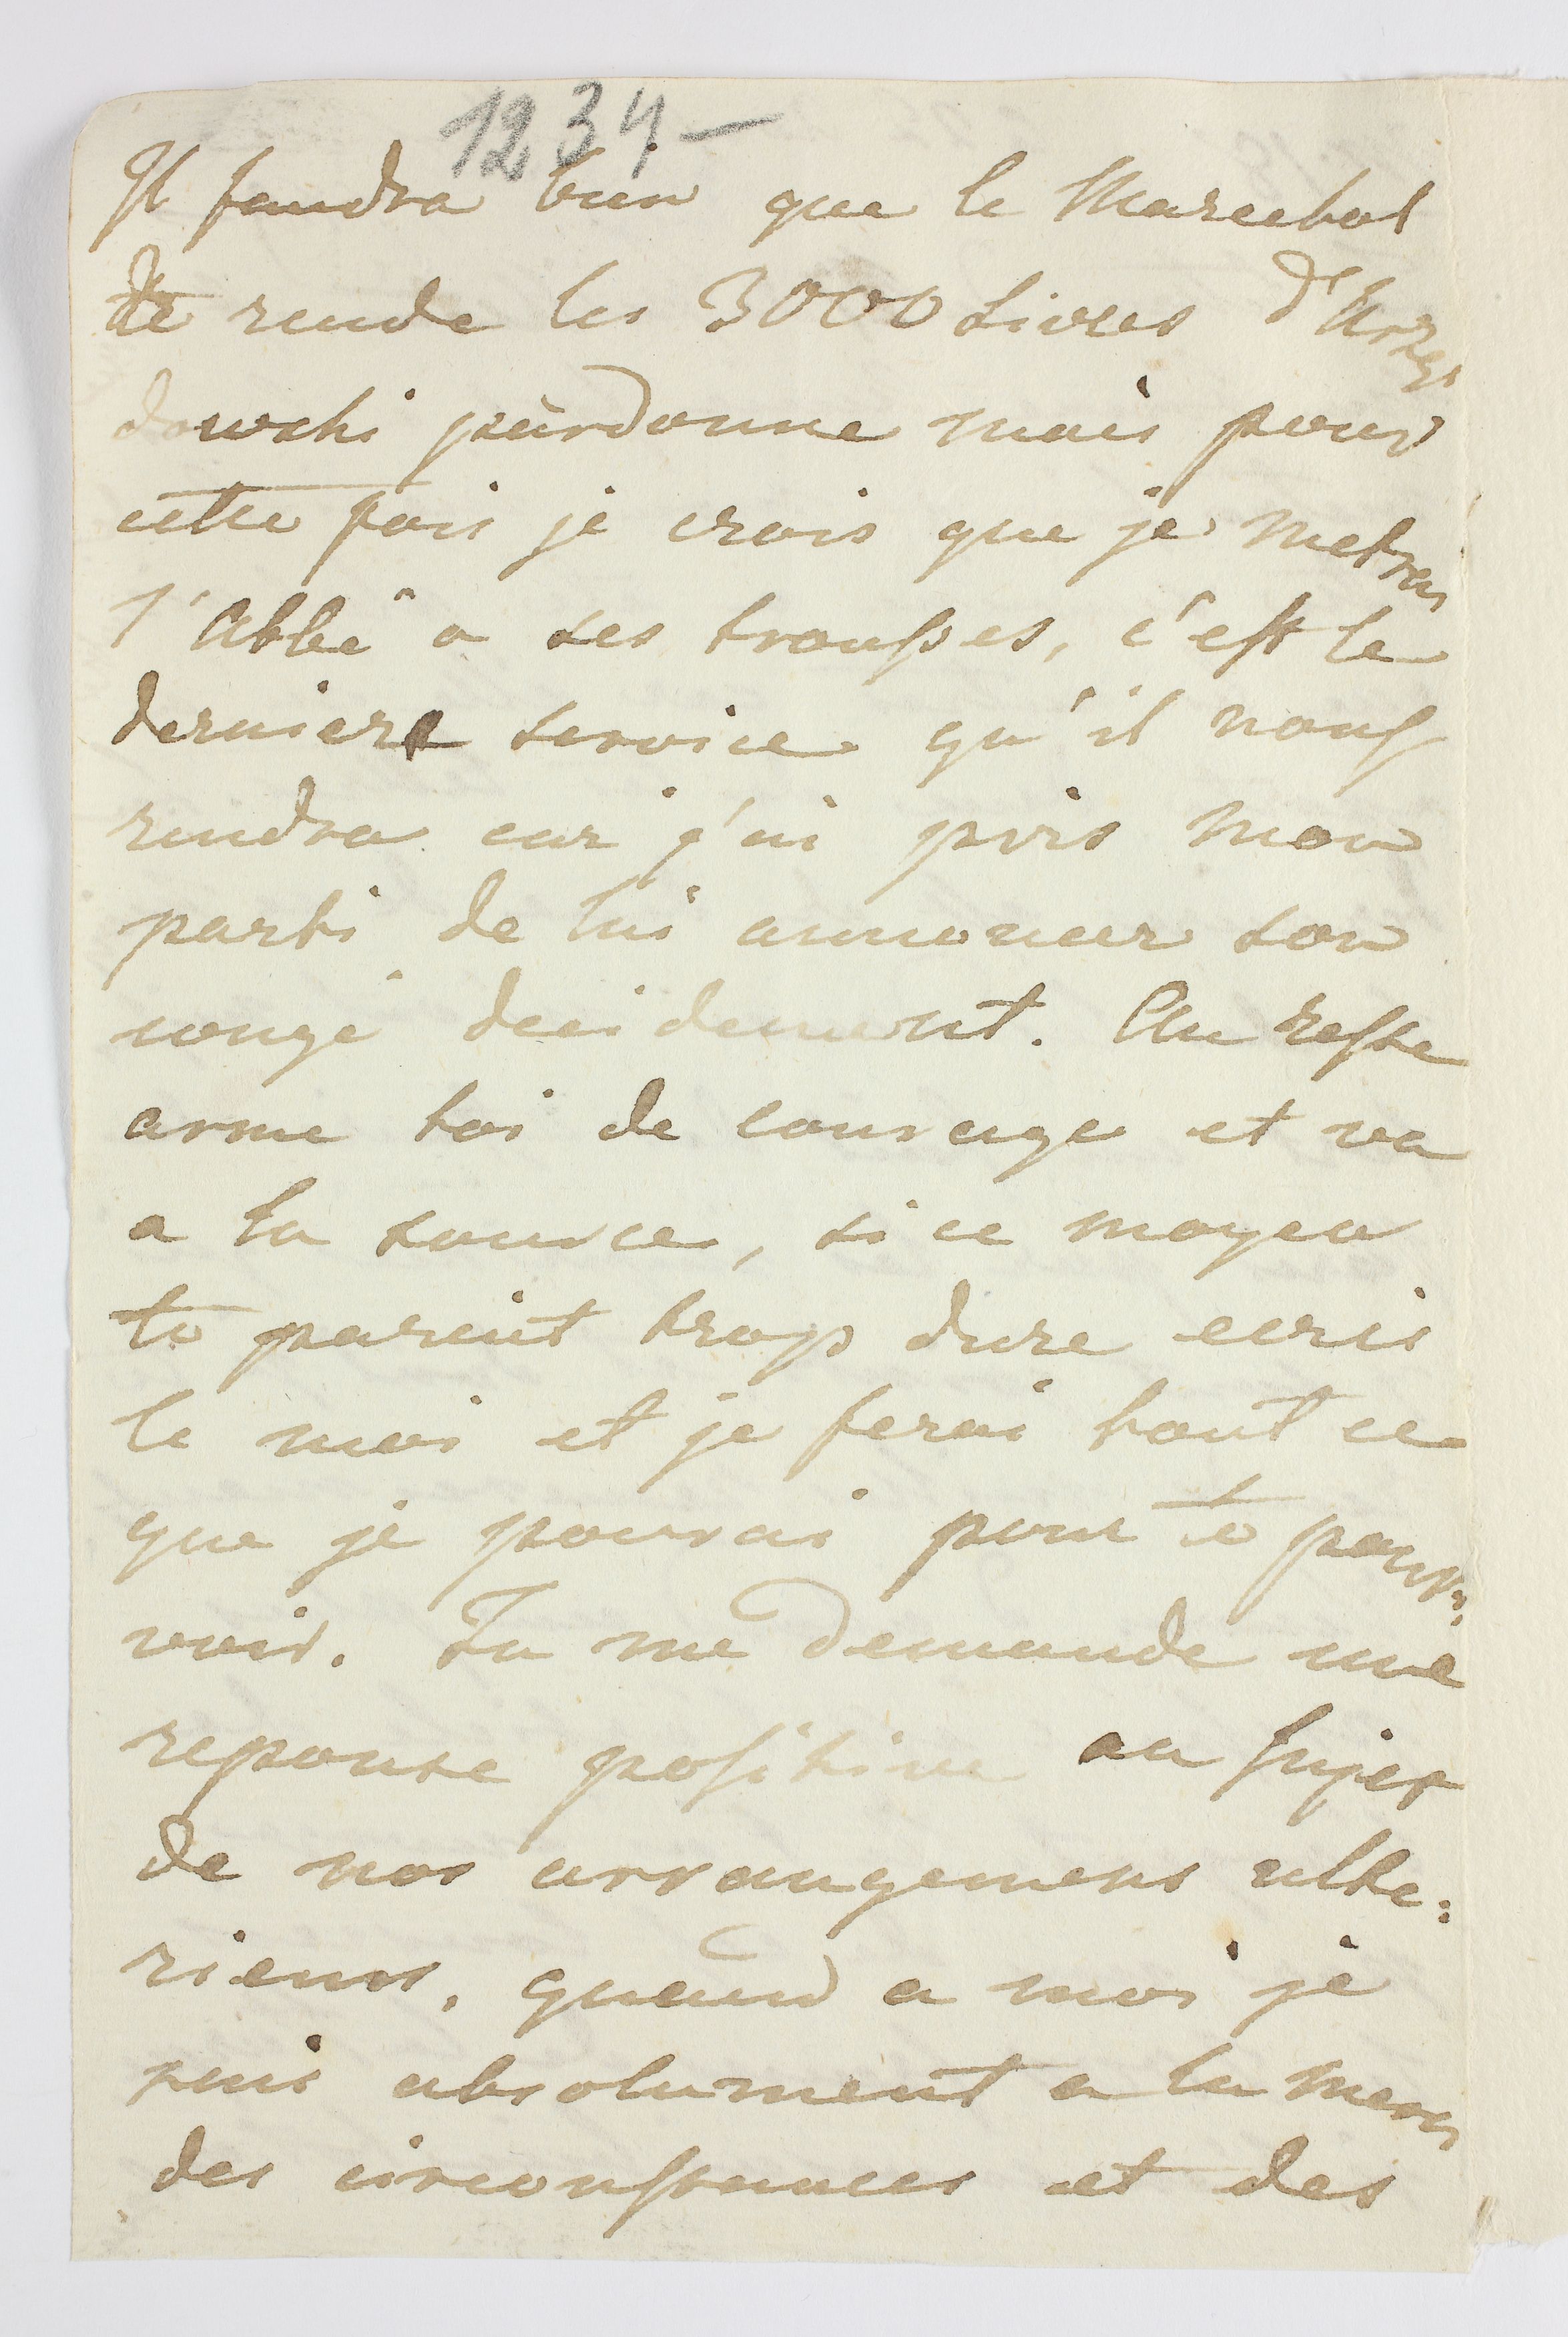 1234 —
Il faudra bien que le Marechal
te rende les 3000 Livres d'Urzę
dowski pardonne mais pour
cette fois je crois que je metrai
l'Abbé a ses trousses, c'est le
dernier service qu'il nous
rendra car j'ai pris mon
parti de lui annoncer son
congé decidement. Au reste
arme toi de courage et va
a la source, si ce moyen
te parait trop dure ecris
le moi et je ferai tout ce
que je pourai pour te pour=
voir. Tu me demande une
reponse positive au sujet
de nos arrangemens ulte=
rieurs, quand a moi je
suis absolument a la merci
des circonstances et des